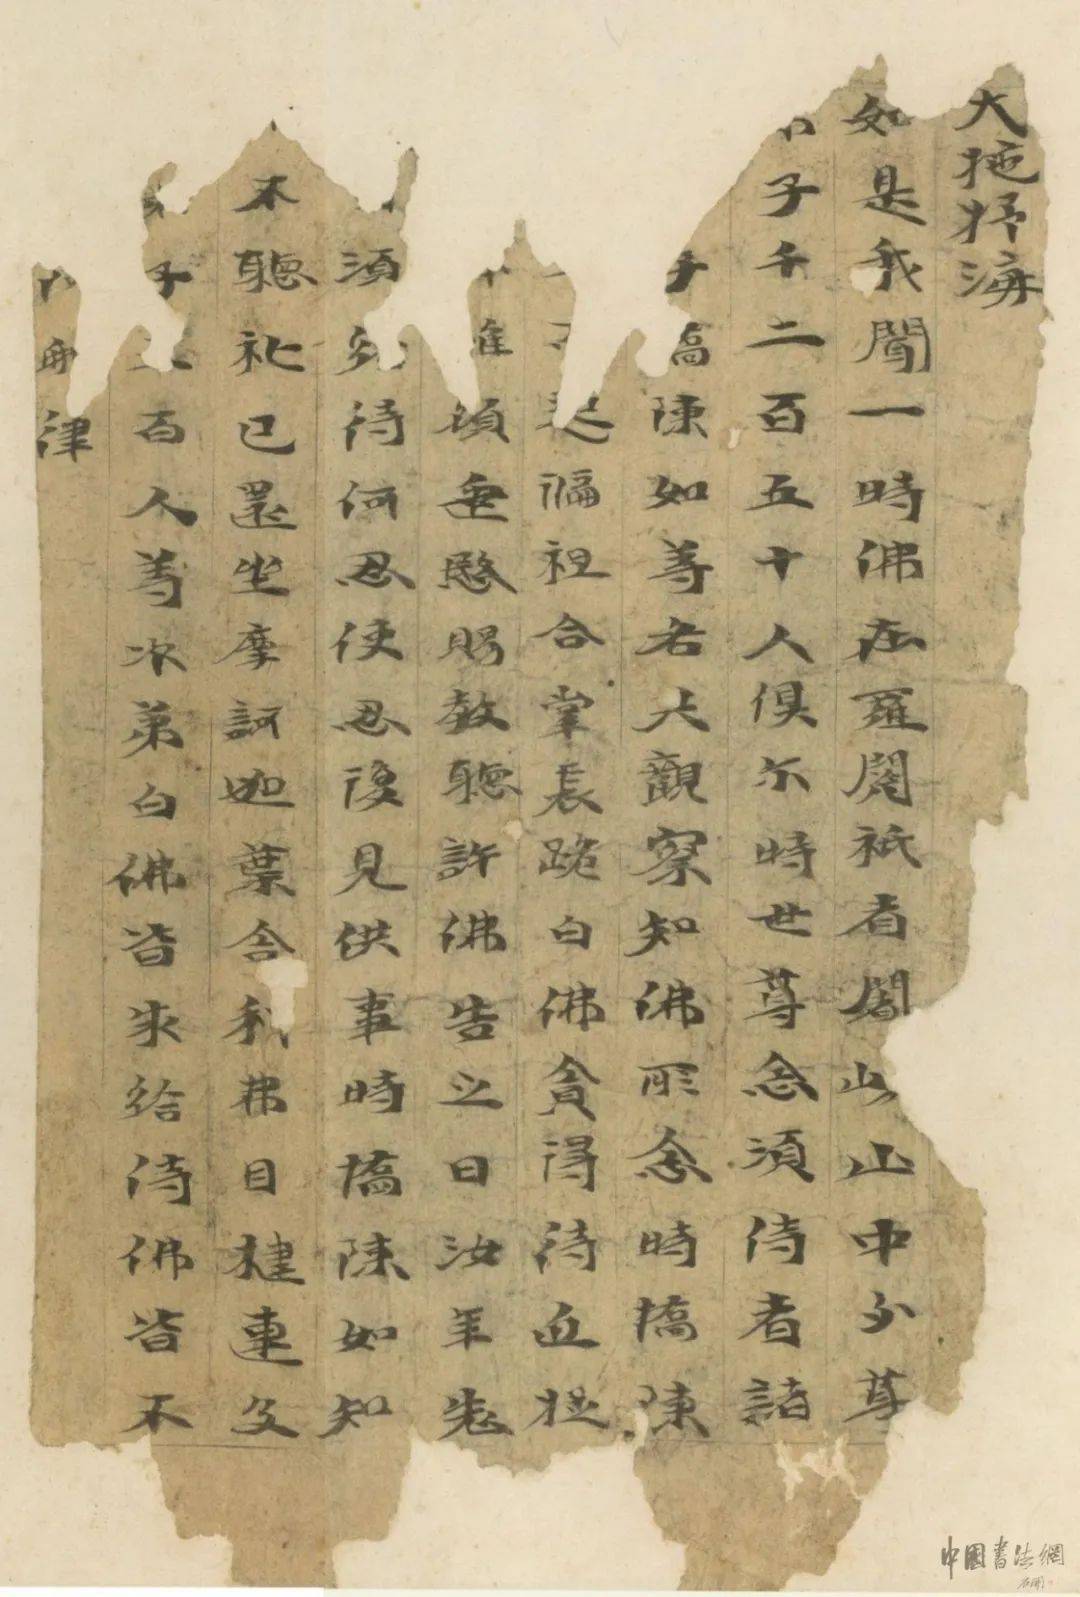 大
如是我聞一時佛在羅閱祇耆闍山山中少尊
子千二百五十人俱尒時世尊念須侍者諸
陳如等名大觀察知佛所念時憍陳
起徧袒合掌長跪白佛貪得侍
頃垂愍賜教聽許佛告之曰汝年
須侍何忍使忍復見供事時憍陳如知
不聽礼已還坐摩訶迦葉舍利弗目揵連
百人等次弟白佛皆求給侍佛皆不
律
中國書法網